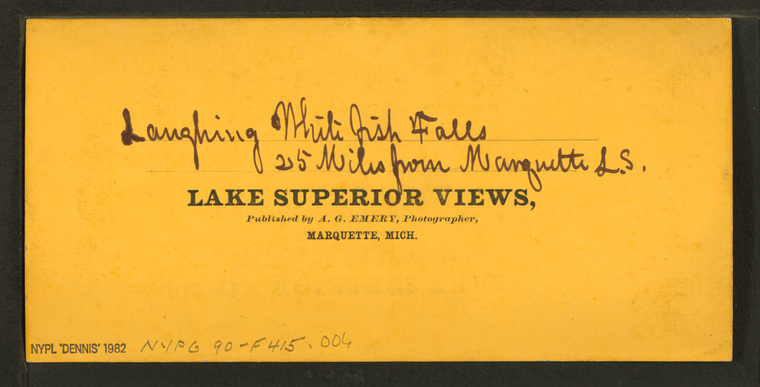 Laughing White fish Falls
25 Miles from Marquette L.S.
LAKE SUPERIOR VIEWS,
Published by A. G. EMERY, Photographer,
MARQUETTE, MICH.
NYPL "DENNIS" 1982 NYPG 90-F415.004